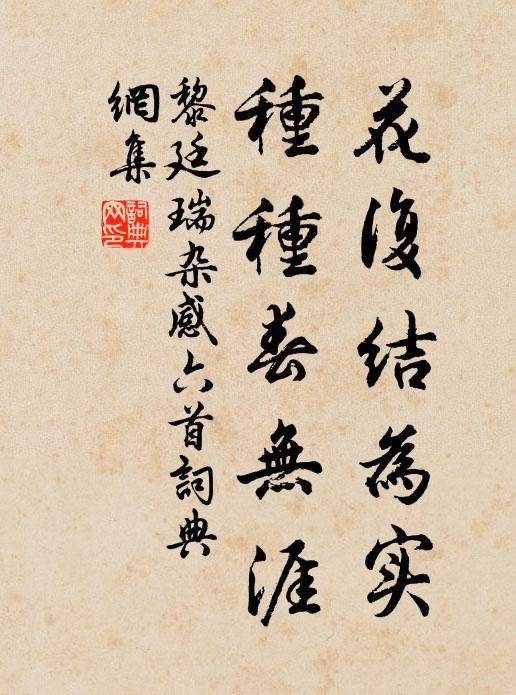 花復结為实
種種春無涯
黎廷瑞杂感六首詞典
網集
詞典
网印